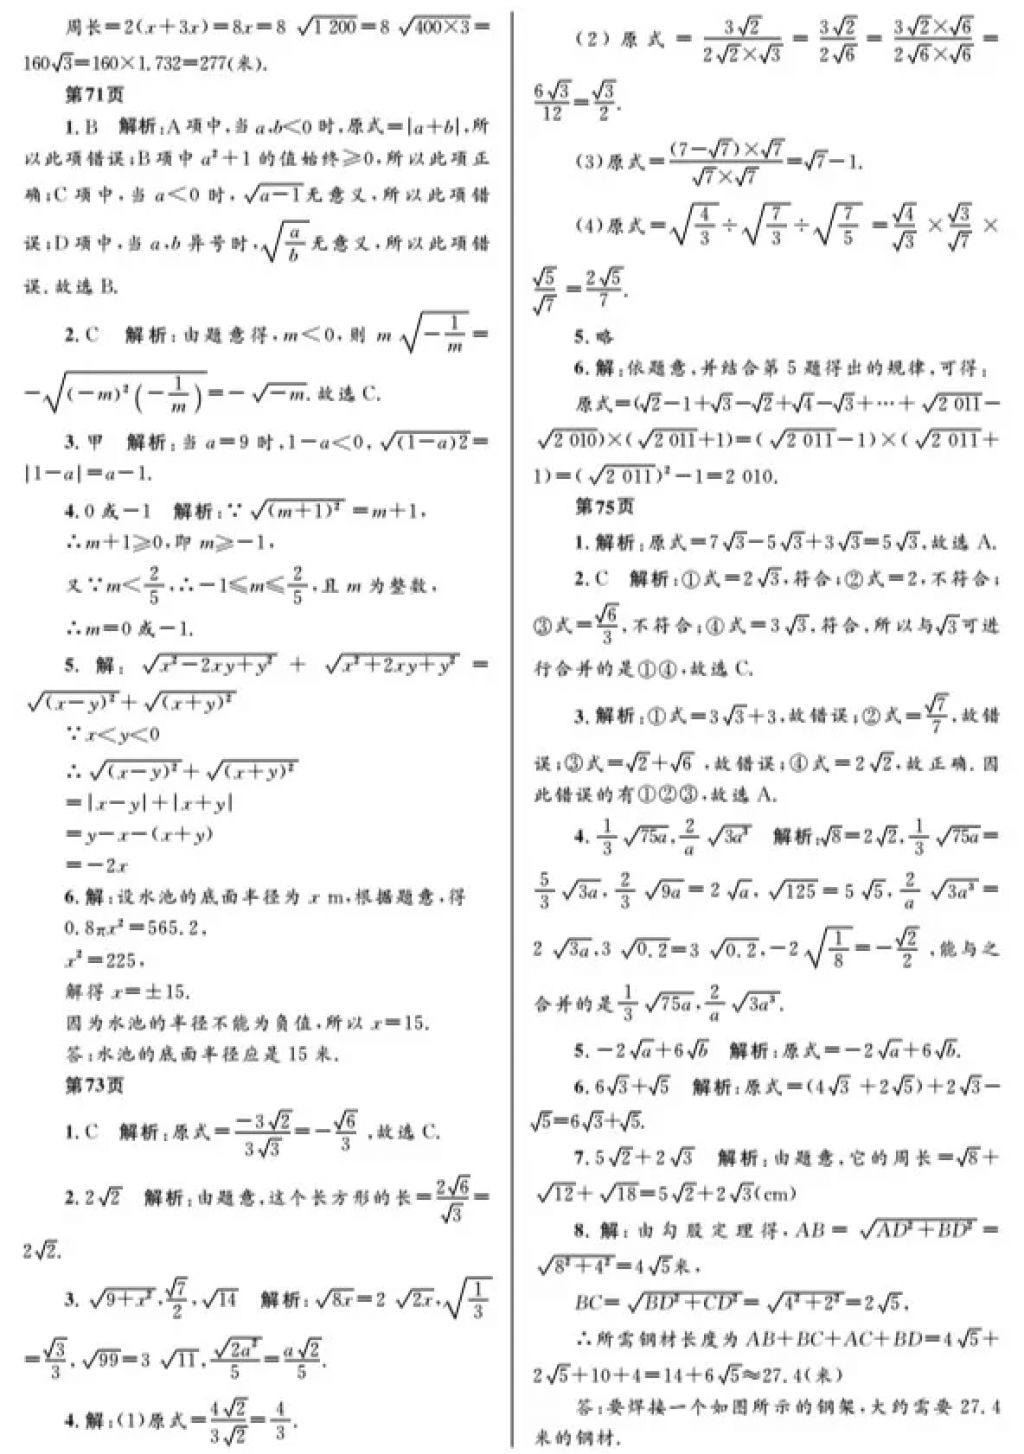 周长=2(x+3x)=8x=8 √1 200=8 √400×3=
160√3=160×1.732=277(米).
第71页
1. B 解析:A项中,当a,b<0时,原式=|a+b|,所
以此项错误;B项中a²+1的值始终≥0,所以此项正
确;C项中,当a<0时,√a-1无意义,所以此项错
误;D项中,当a,b异号时,√(a/b)无意义,所以此项错
误.故选B.
2. C 解析:由题意得,m<0,则m√(-1/m)=
-√((-m)²(-1/m))=-√-m.故选C.
3. 甲 解析:当a=9时,1-a<0,√(1-a)2=
|1-a|=a-1.
4. 0或-1 解析:∵√(m+1)²=m+1,
∴m+1≥0,即m≥-1,
又∵m<2/5,∴-1≤m≤2/5,且m为整数,
∴m=0或-1.
5. 解:√(x²-2xy+y²)+√(x²+2xy+y²)=
√(x-y)²+√(x+y)²
∵x<y<0
∴√(x-y)²+√(x+y)²
=|x-y|+|x+y|
=y-x-(x+y)
=-2x
6. 解:设水池的底面半径为x m,根据题意,得
0.8πx²=565.2,
x²=225,
解得x=±15.
因为水池的半径不能为负值,所以x=15.
答:水池的底面半径应是15米.
第73页
1. C 解析:原式=-3√2/3√3=-√6/3,故选C.
2. 2√2 解析:由题意,这个长方形的长=2√6/√3=
2√2.
3. √(9+x²),√7/2,√14 解析:√8x=2√2x,√(1/3)
=√3/3,√99=3√11,√(2a²)/5=a√2/5.
4. 解:(1)原式=4√2/3√2=4/3.
(2)原式=3√2/(2√2×√3)=3√2/2√6=(3√2×√6)/(2√6×√6)=
6√3/12=√3/2.
(3)原式=((7-√7)×√7)/(√7×√7)=√7-1.
(4)原式=√(4/3)÷√(7/3)÷√(7/5)=√4/√3×√3/√7×
√5/√7=2√5/7.
5. 略
6. 解:依题意,并结合第5题得出的规律,可得:
原式=(√2-1+√3-√2+√4-√3+…+√2 011-
√2 010)×(√2 011+1)=(√2 011-1)×(√2 011+
1)=(√2 011)²-1=2 010.
第75页
1. 解析:原式=7√3-5√3+3√3=5√3,故选A.
2. C 解析:①式=2√3,符合;②式=2,不符合;
③式=√6/3,不符合;④式=3√3,符合,所以与√3可进
行合并的是①④,故选C.
3. 解析:①式=3√3+3,故错误;②式=√7/7,故错
误;③式=√2+√6,故错误;④式=2√2,故正确.因
此错误的有①②③,故选A.
4. 1/3√75a,2/a√3a³ 解析:√8=2√2,1/3√75a=
5/3√3a,2/3√9a=2√a,√125=5√5,2/a√3a³=
2√3a,3√0.2=3√0.2,-2√(1/8)=-√2/2,能与之
合并的是1/3√75a,2/a√3a³.
5. -2√a+6√b 解析:原式=-2√a+6√b.
6. 6√3+√5 解析:原式=(4√3+2√5)+2√3-
√5=6√3+√5.
7. 5√2+2√3 解析:由题意,它的周长=√8+
√12+√18=5√2+2√3(cm)
8. 解:由勾股定理得,AB=√(AD²+BD²)=
√(8²+4²)=4√5米,
BC=√(BD²+CD²)=√(4²+2²)=2√5,
∴所需钢材长度为AB+BC+AC+BD=4√5+
2√5+10+4=14+6√5≈27.4(米)
答:要焊接一个如图所示的钢架,大约需要27.4
米的钢材.